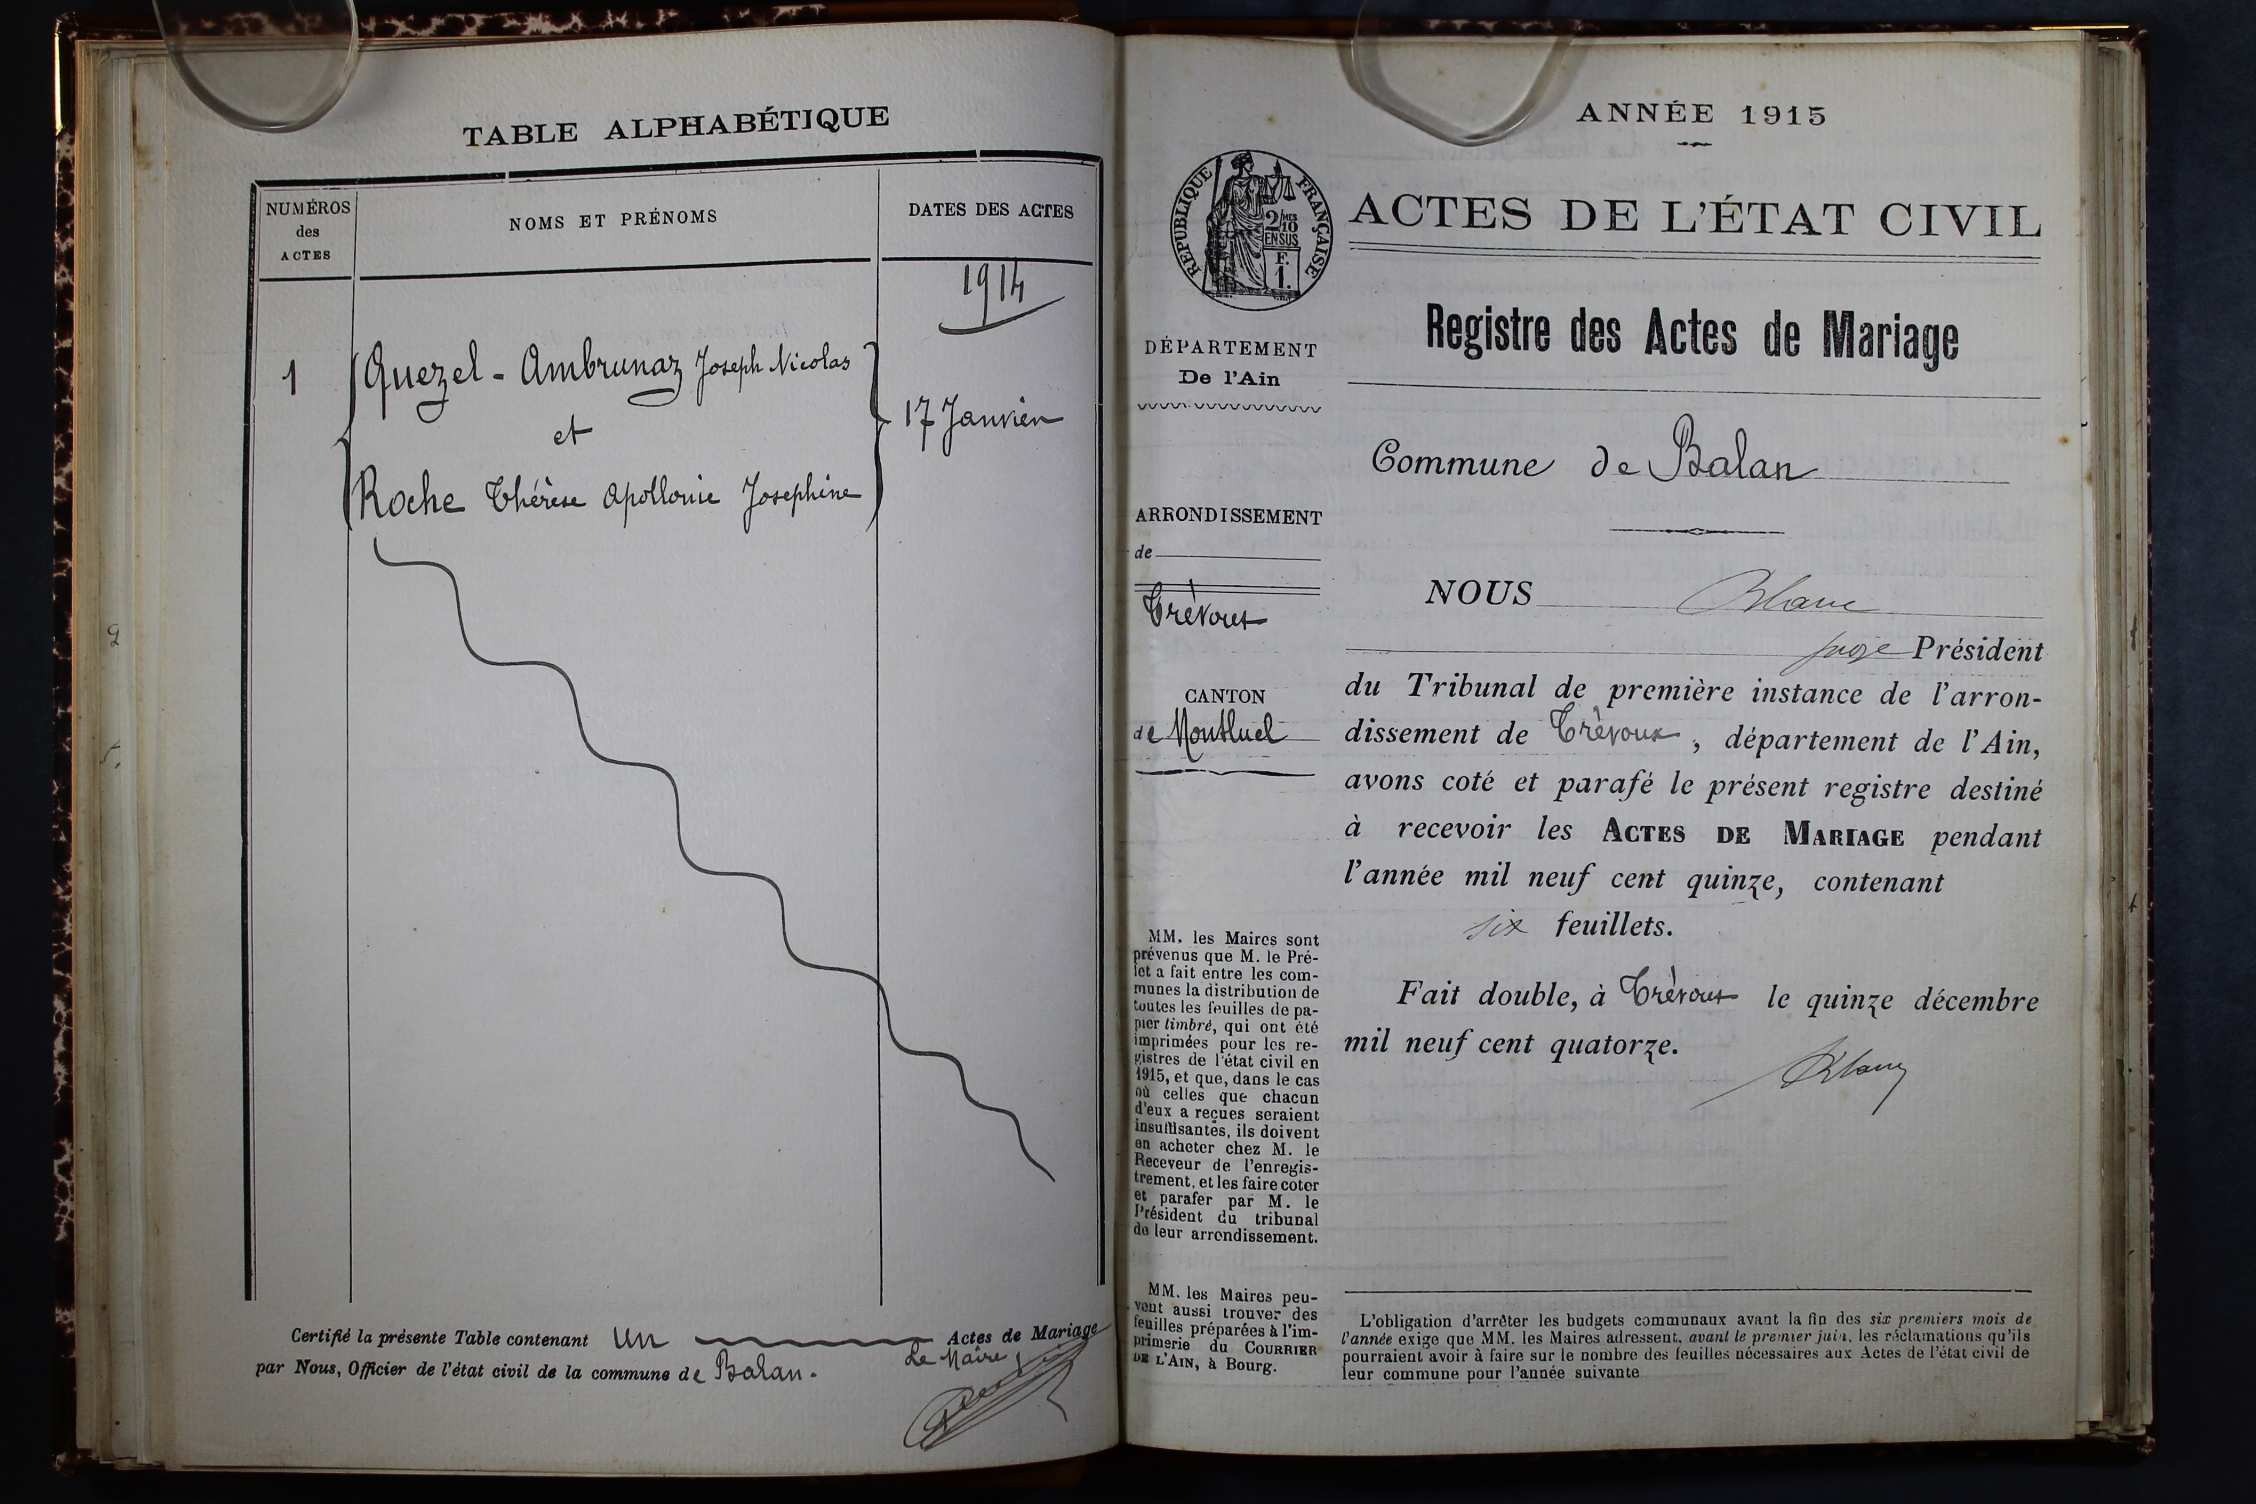 TABLE ALPHABÉTIQUE
NUMÉROS
des
ACTES
NOMS ET PRÉNOMS
DATES DES ACTES
1914
1
Quezel - Ambrunaz Joseph Nicolas
et
Roche Thérèse Apollonie Josephine
17 Janvier
Certifié la présente Table contenant un Actes de Mariage
par Nous, Officier de l'état civil de la commune de Balan.
Le Maire,
ANNÉE 1915
RÉPUBLIQUE FRANÇAISE
2/10
EN SUS
F.
1.
ACTES DE L'ÉTAT CIVIL
Registre des Actes de Mariage
DÉPARTEMENT
De l'Ain
Commune de Balan
ARRONDISSEMENT
de
Trévoux
CANTON
de Montluel
NOUS Blanc
juge Président
du Tribunal de première instance de l'arron-
dissement de Trévoux, département de l'Ain,
avons coté et parafé le présent registre destiné
à recevoir les ACTES DE MARIAGE pendant
l'année mil neuf cent quinze, contenant
six feuillets.
Fait double, à Trévoux le quinze décembre
mil neuf cent quatorze.
Blanc
MM. les Maires sont
prévenus que M. le Pré-
fet a fait entre les com-
munes la distribution de
toutes les feuilles de pa-
pier timbré, qui ont été
imprimées pour les re-
gistres de l'état civil en
1915, et que, dans le cas
où celles que chacun
d'eux a reçues seraient
insuffisantes, ils doivent
en acheter chez M. le
Receveur de l'enregis-
trement, et les faire coter
et parafer par M. le
Président du tribunal
de leur arrondissement.
MM. les Maires peu-
vent aussi trouver des
feuilles préparées à l'im-
primerie du COURRIER
DE L'AIN, à Bourg.
L'obligation d'arrêter les budgets communaux avant la fin des six premiers mois de
l'année exige que MM. les Maires adressent, avant le premier juin, les réclamations qu'ils
pourraient avoir à faire sur le nombre des feuilles nécessaires aux Actes de l'état civil de
leur commune pour l'année suivante